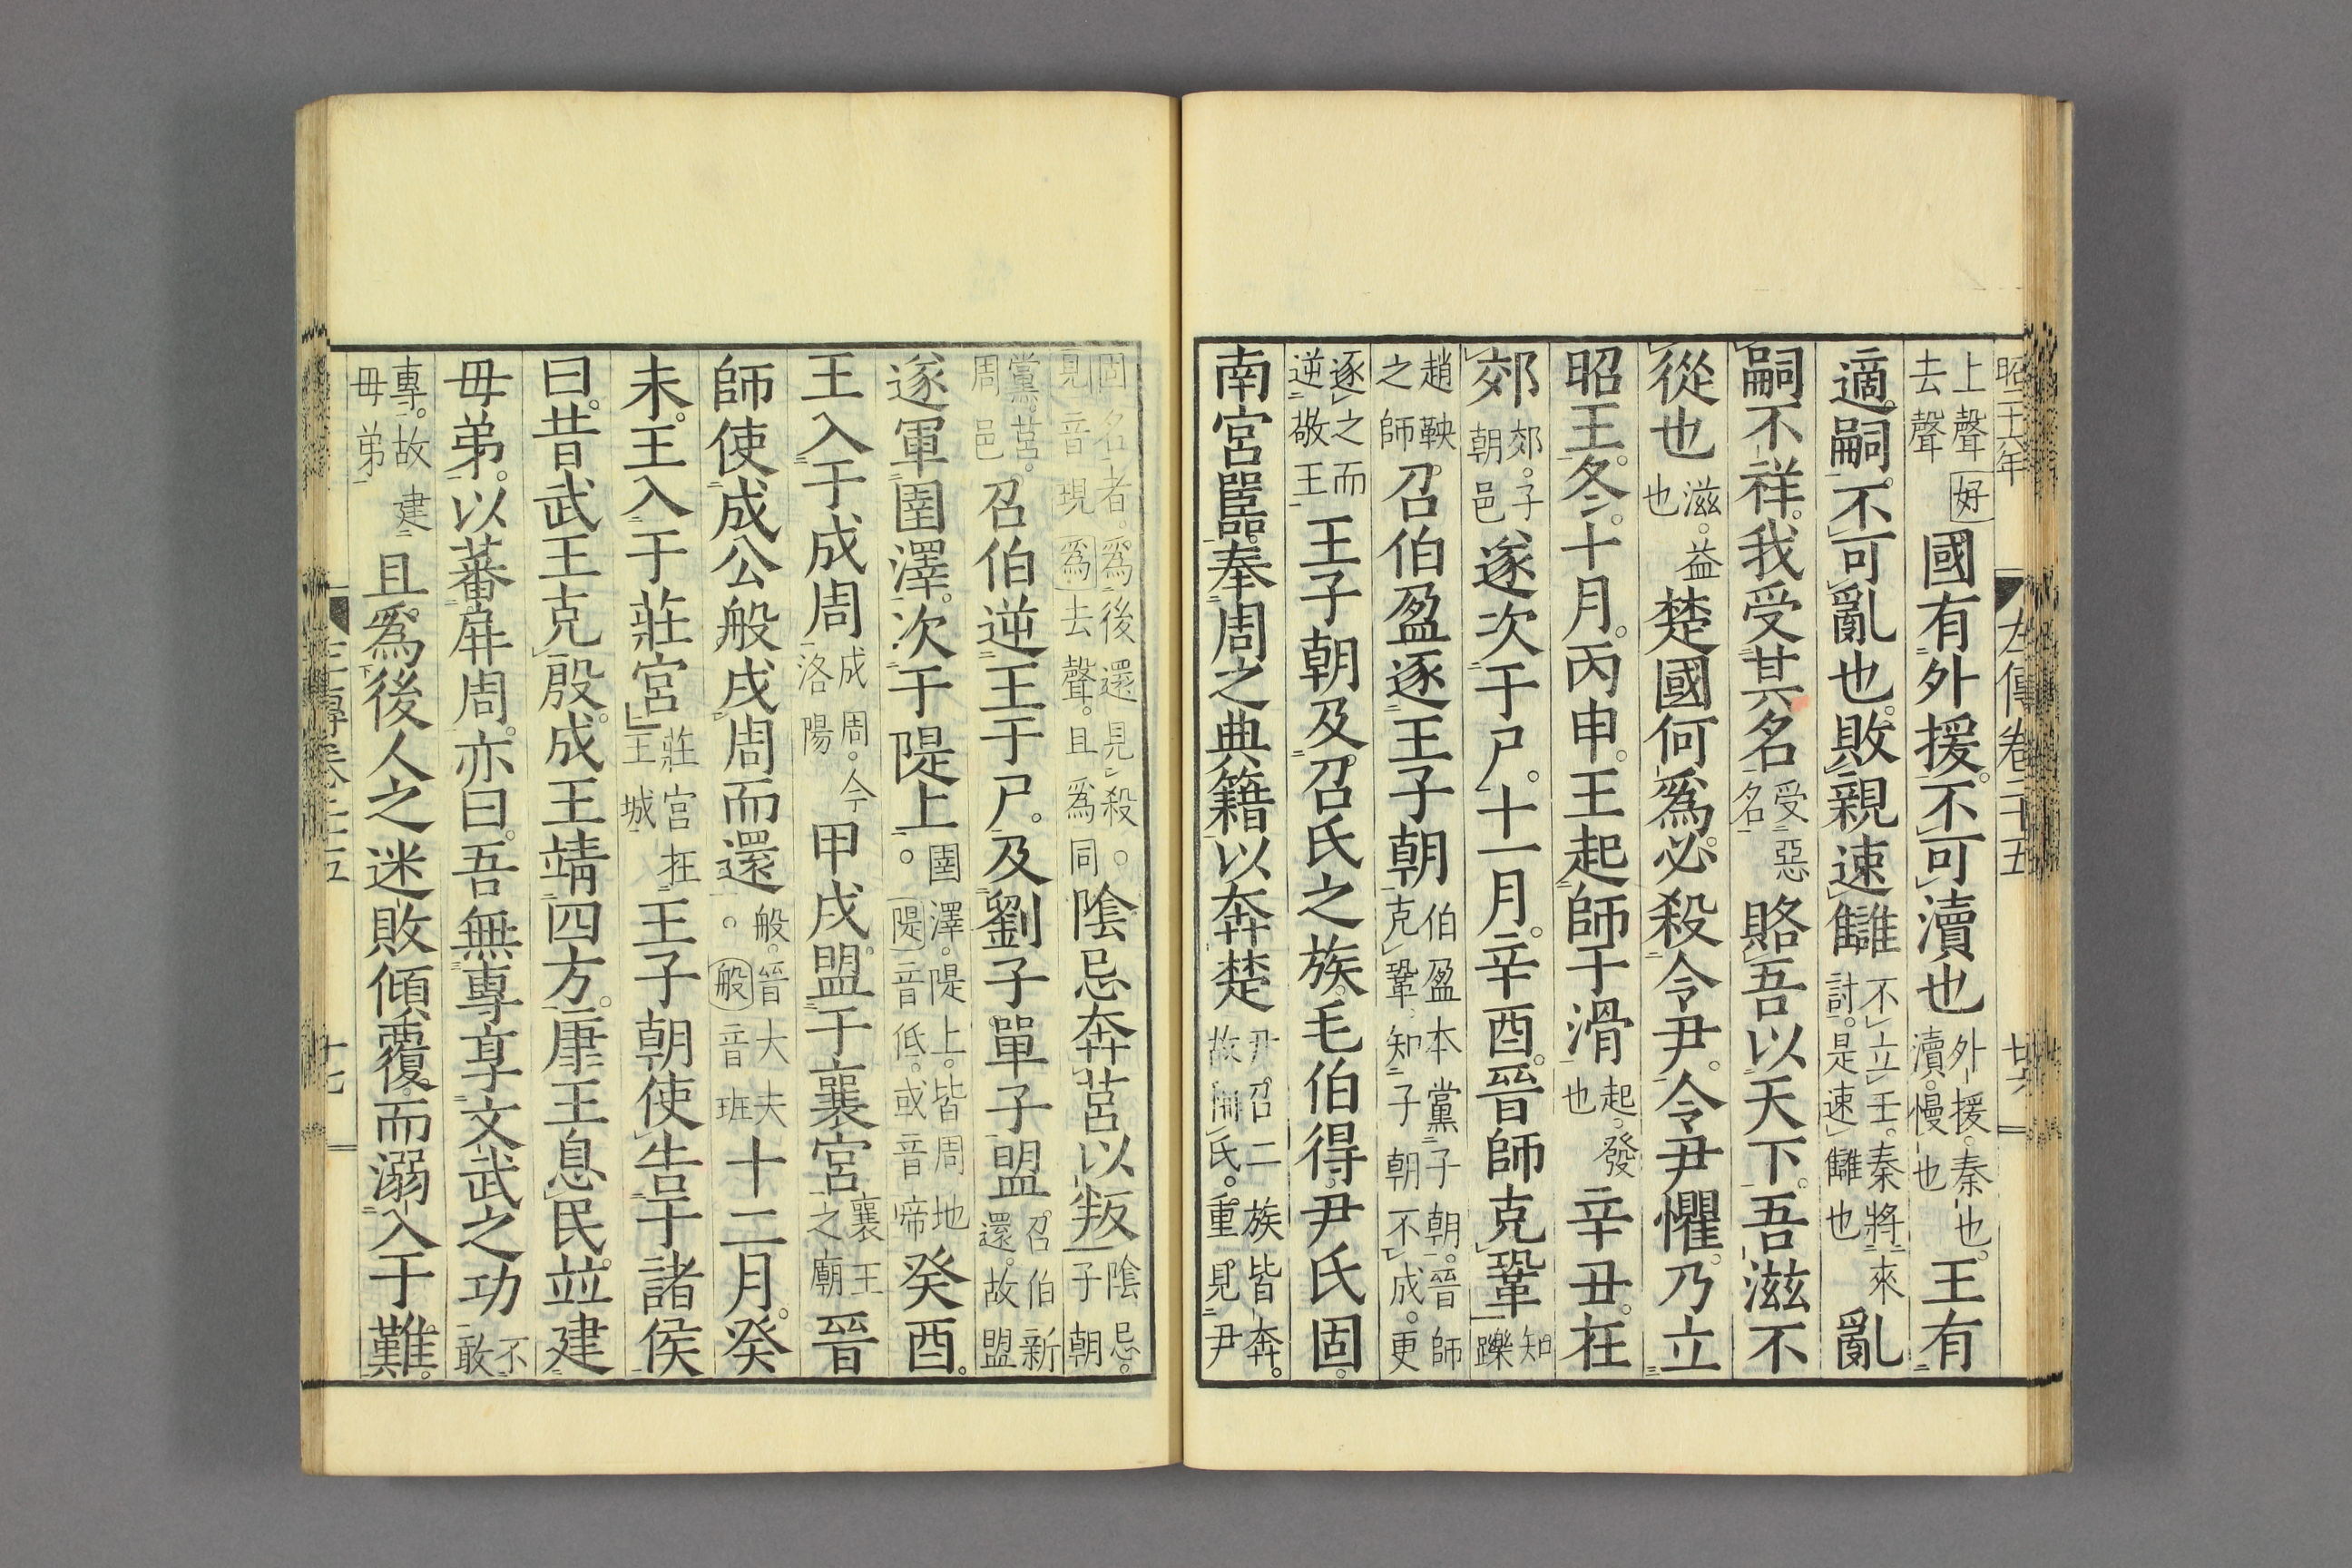 昭二十六年
左傳卷二十五
廿六
上聲好去聲國有外援。不可瀆也外援。秦也。瀆。慢也王有
適嗣。不可亂也。敗親速讎不立壬。秦將來討。是速讎也亂
嗣不祥。我受其名受惡名賂吾以天下。吾滋不
從也滋。益也楚國何爲。必殺令尹。令尹懼。乃立
昭王。冬。十月。丙申。王起師于滑起。發也辛丑。在
郊郊。子朝邑遂次于尸。十一月。辛酉。晉師克鞏知躒
趙鞅。之師召伯盈逐王子朝伯盈本黨子朝。晉師克鞏。知子朝不成。更
逐之而逆敬王王子朝及召氏之族。毛伯得。尹氏固。
南宮嚚。奉周之典籍以奔楚尹。召二族皆奔。故稱氏。重見尹
固名者。爲後還見殺。見音現爲去聲。且爲同陰忌奔莒以叛陰忌。子朝
黨。莒。周邑召伯逆王于尸。及劉子單子盟召伯新還。故盟
遂軍圉澤。次于隄上。圉澤。隄上。皆周地隄音低。或音啼癸酉。
王入于成周成周。今洛陽甲戌。盟于襄宮襄王之廟晉
師使成公般戍周而還。般。晉大夫般音班十二月。癸
未。王入于莊宮莊宮在王城王子朝使告于諸侯
曰。昔武王克殷。成王靖四方。康王息民。竝建
毋弟。以蕃屏周。亦曰。吾無專享文武之功不敢
專。故建毋弟且爲後人之迷敗傾覆。而溺入于難。